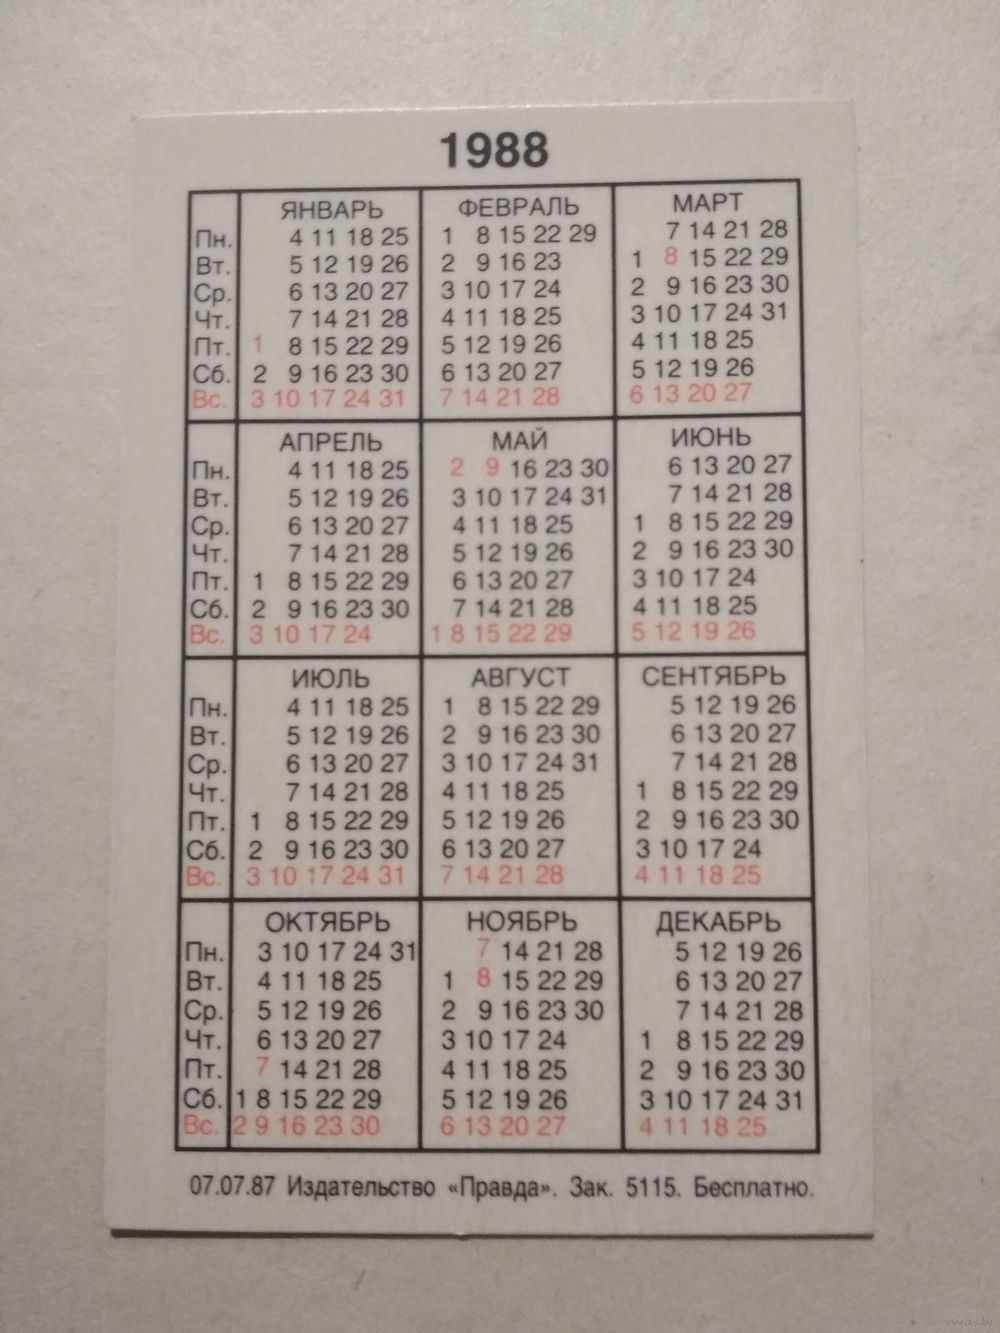 1988
ЯНВАРЬ ФЕВРАЛЬ МАРТ
Пн. 4 11 18 25 1 8 15 22 29 7 14 21 28
Вт. 5 12 19 26 2 9 16 23 1 8 15 22 29
Ср. 6 13 20 27 3 10 17 24 2 9 16 23 30
Чт. 7 14 21 28 4 11 18 25 3 10 17 24 31
Пт. 1 8 15 22 29 5 12 19 26 4 11 18 25
Сб. 2 9 16 23 30 6 13 20 27 5 12 19 26
Вс. 3 10 17 24 31 7 14 21 28 6 13 20 27
АПРЕЛЬ МАЙ ИЮНЬ
Пн. 4 11 18 25 2 9 16 23 30 6 13 20 27
Вт. 5 12 19 26 3 10 17 24 31 7 14 21 28
Ср. 6 13 20 27 4 11 18 25 1 8 15 22 29
Чт. 7 14 21 28 5 12 19 26 2 9 16 23 30
Пт. 1 8 15 22 29 6 13 20 27 3 10 17 24
Сб. 2 9 16 23 30 7 14 21 28 4 11 18 25
Вс. 3 10 17 24 1 8 15 22 29 5 12 19 26
ИЮЛЬ АВГУСТ СЕНТЯБРЬ
Пн. 4 11 18 25 1 8 15 22 29 5 12 19 26
Вт. 5 12 19 26 2 9 16 23 30 6 13 20 27
Ср. 6 13 20 27 3 10 17 24 31 7 14 21 28
Чт. 7 14 21 28 4 11 18 25 1 8 15 22 29
Пт. 1 8 15 22 29 5 12 19 26 2 9 16 23 30
Сб. 2 9 16 23 30 6 13 20 27 3 10 17 24
Вс. 3 10 17 24 31 7 14 21 28 4 11 18 25
ОКТЯБРЬ НОЯБРЬ ДЕКАБРЬ
Пн. 3 10 17 24 31 7 14 21 28 5 12 19 26
Вт. 4 11 18 25 1 8 15 22 29 6 13 20 27
Ср. 5 12 19 26 2 9 16 23 30 7 14 21 28
Чт. 6 13 20 27 3 10 17 24 1 8 15 22 29
Пт. 7 14 21 28 4 11 18 25 2 9 16 23 30
Сб. 1 8 15 22 29 5 12 19 26 3 10 17 24 31
Вс. 2 9 16 23 30 6 13 20 27 4 11 18 25
07.07.87 Издательство «Правда». Зак. 5115. Бесплатно.
www.ay.by